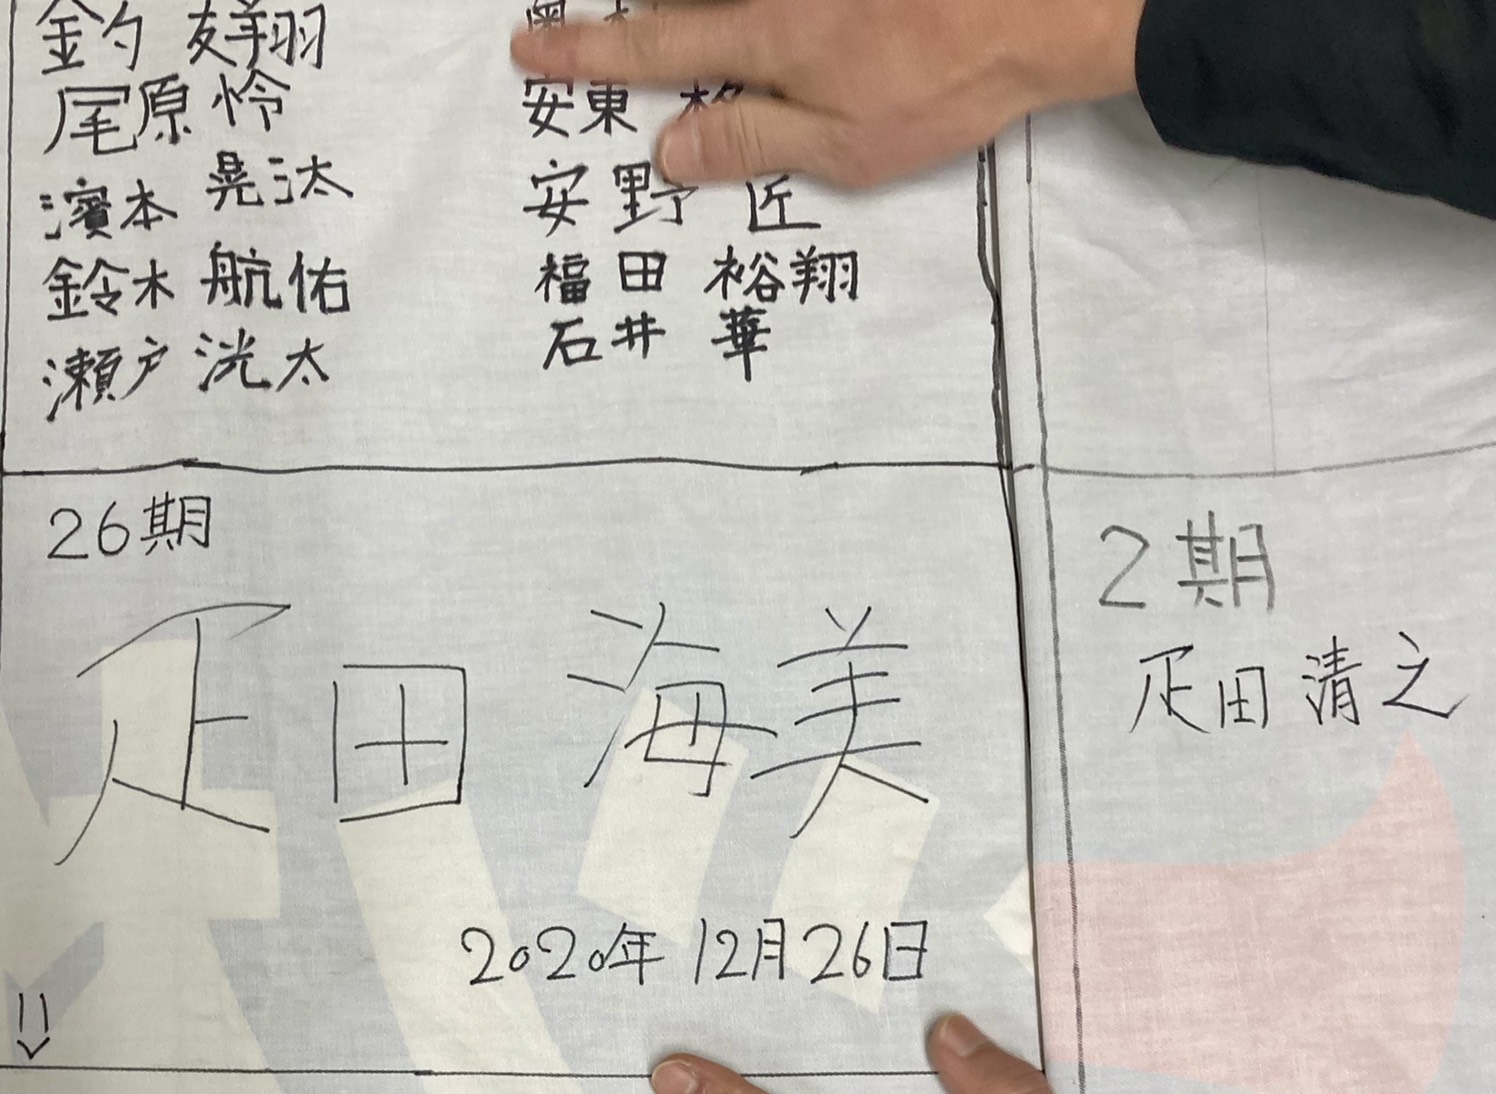 釣 友翔
尾原 怜
濱本 晃汰
鈴木 航佑
瀬戸 洸太
奥
安東
安野 匠
福田 裕翔
石井 華
26期
疋田 海美
2020年 12月26日
2期
疋田 清之